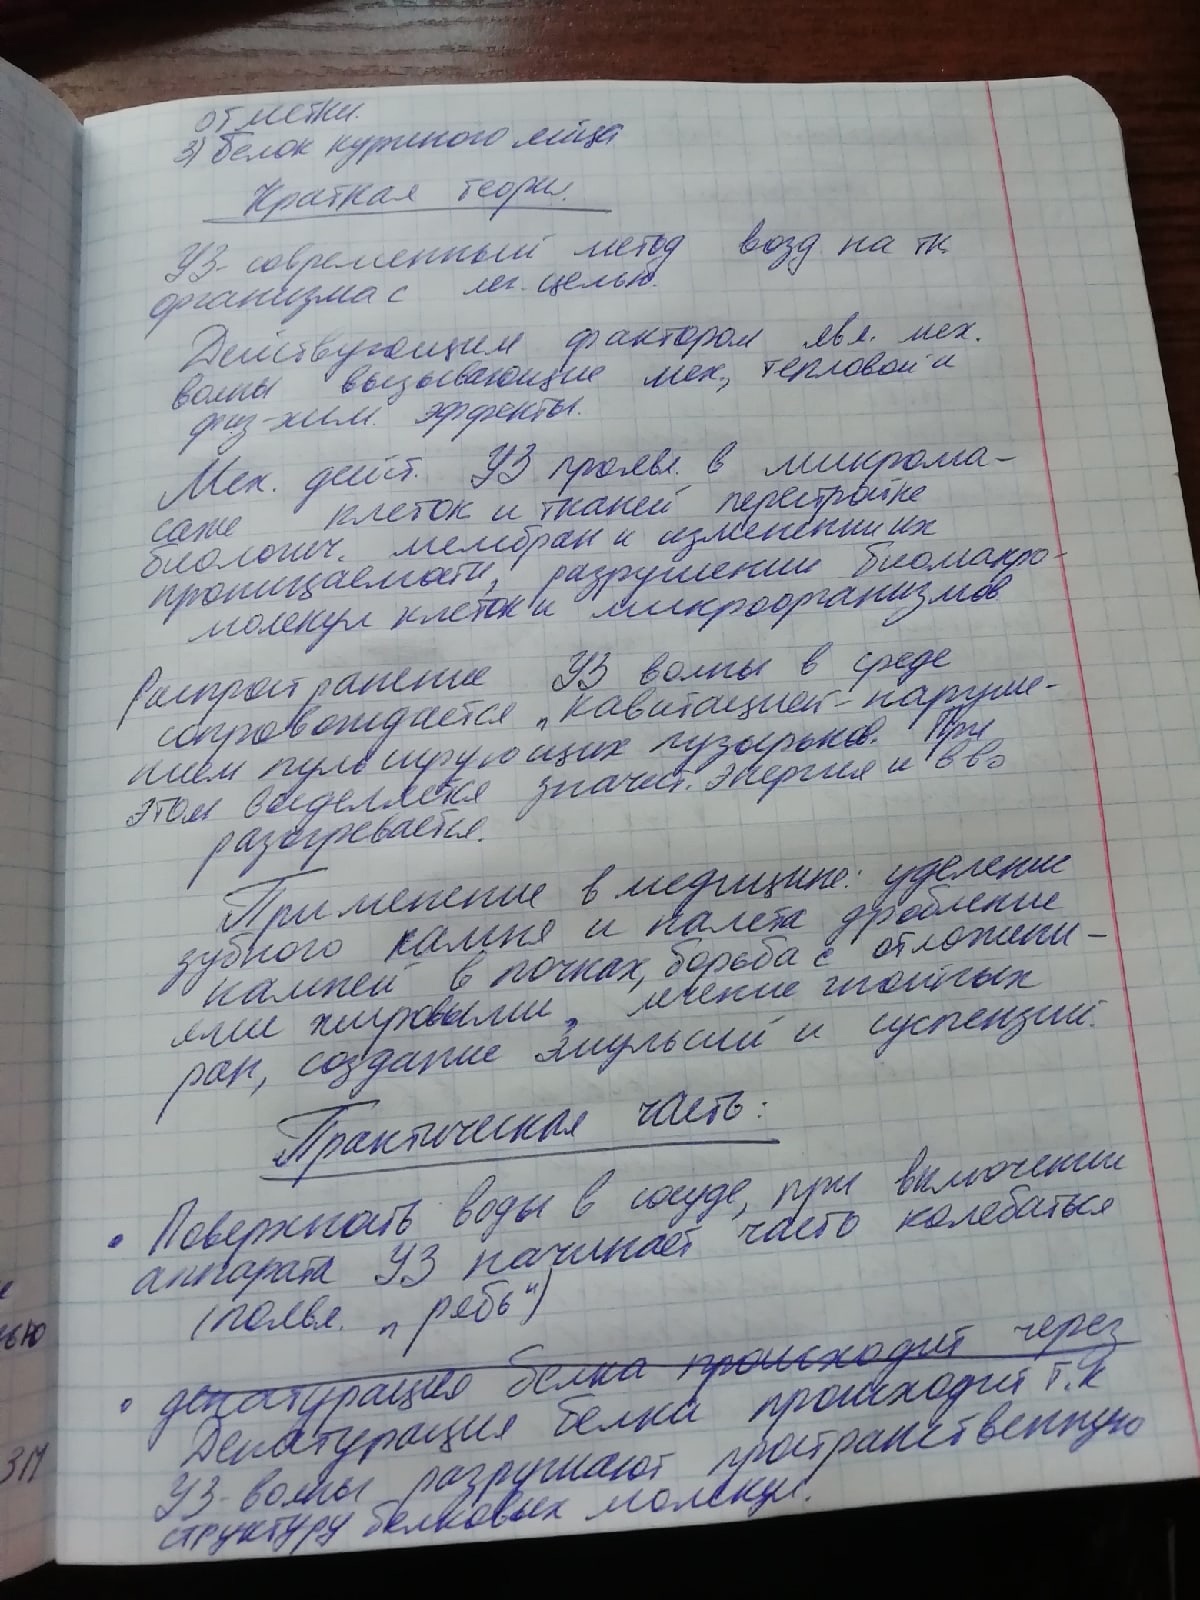 от метки.
3) белок куриного яйца
Краткая теория.
УЗ-современный метод возд. на тк.
организма с леч. целью.
Действующим фактором явл. мех.
волны вызывающие мех., тепловой и
физ-хим. эффекты.
Мех. дейст. УЗ проявл. в микрома-
саже клеток и тканей перестройке
биологич. мембран и изменении их
проницаемости, разрушении биомакро-
молекул клеток и микроорганизмов
Распространение УЗ волны в среде
сопровождается „кавитацией-наруше-
нием пульсирующих пузырьков. При
этом выделяется значит. энергия и в-во
разогревается.
Применение в медицине: уделение
зубного камня и налета дробление
камней в почках, борьба с отложени-
ями жировыми, лечение гнойных
ран, создание эмульсий и суспензий.
Практическая часть:
• Поверхность воды в сосуде, при включении
аппарата УЗ начинает часто колебаться
(появл. „рябь")
• денатурация белка происходит через
Денатурация белка происходит т.к
УЗ-волны разрушают пространственную
структуру белковых молекул.
ью
ЗМ